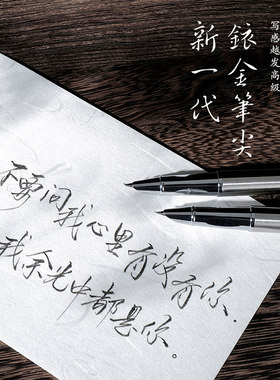 写感越发高级
铱金筆尖
新一代
不要问我心里有没有你，
我余光中都是你。